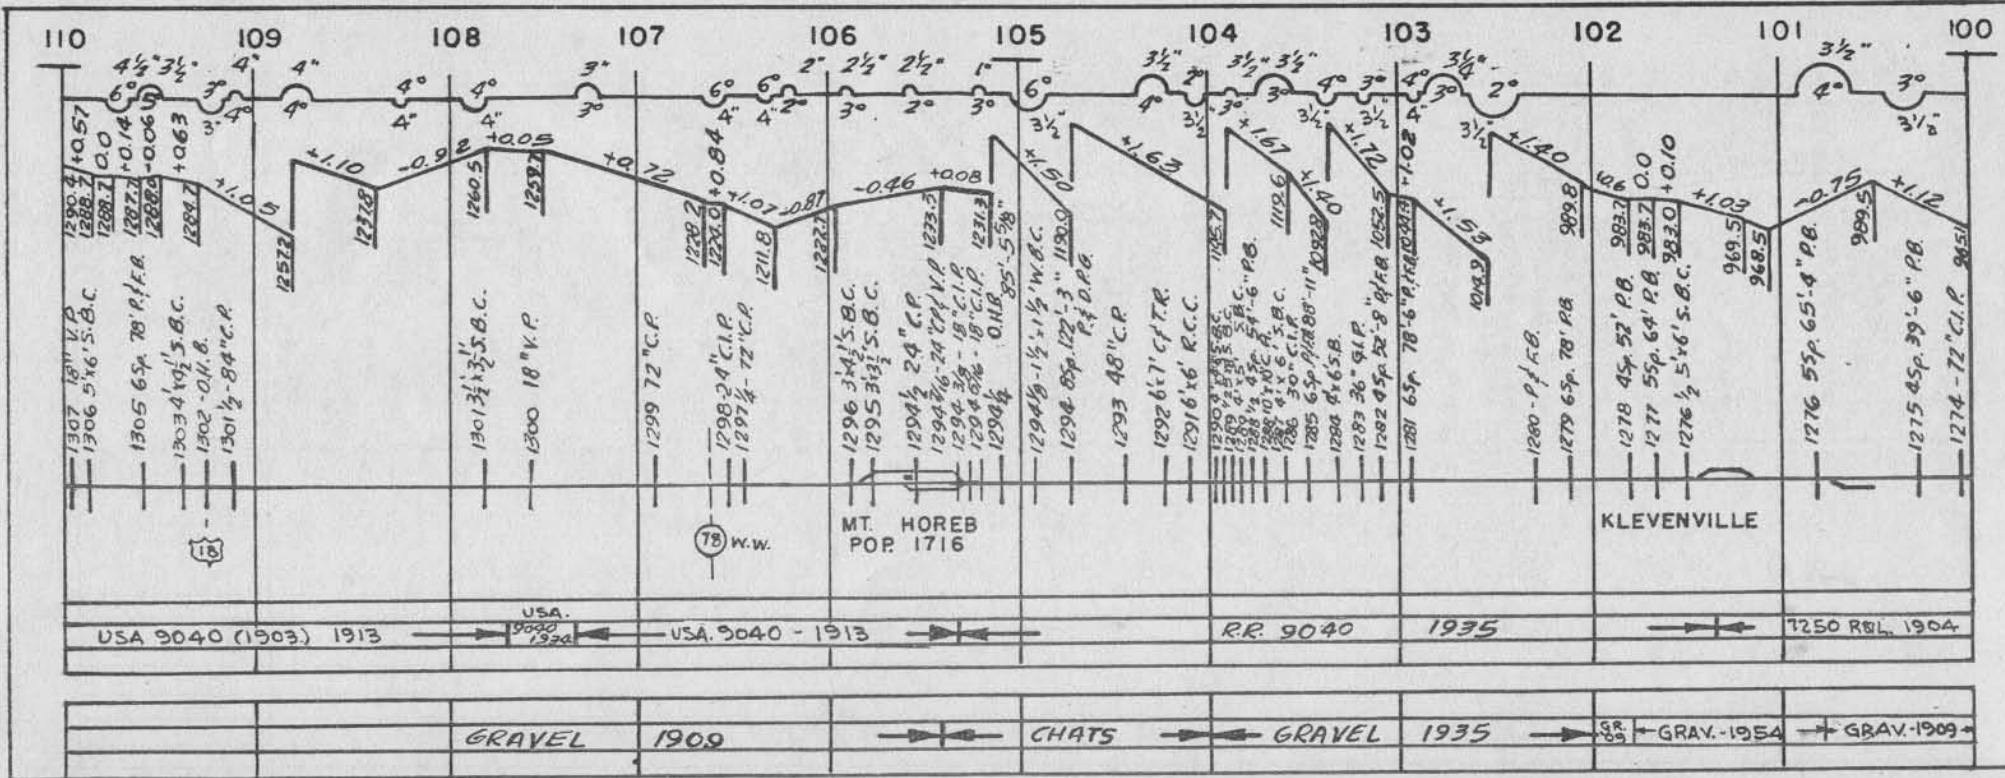 110 109 108 107 106 105 104 103 102 101 100
4½" 3½" 4" 4" 3" 2" 2½" 2½" 1" 3½" 3½" 3½" 3½" 3½"
6° 5° 3° 4° 4° 4° 4° 3° 6° 6° 2° 3° 2° 3° 6° 4° 2° 3° 3° 4° 3° 4° 3° 2° 4° 3°
3" 4" 4" 4" 4" 3½" 3½" 3½" 3½" 4" 3½" 3½"
+0.57 0.0 +0.14 -0.06 +0.63 +1.05 +1.10 -0.92 +0.05 +0.72 +0.84 +1.07 -0.87 -0.46 +0.08 +1.50 +1.63 +1.67 +1.40 +1.72 +1.02 +1.53 +1.40 +0.6 0.0 +0.10 +1.03 -0.75 +1.12
1290.4 1288.7 1288.7 1287.7 1288.0 1284.7 1257.2 1237.8 1260.5 1259.7 1228.2 1224.0 1211.8 1222.7 1233.5 1231.3 1190.0 1145.7 1119.6 1092.9 1052.5 1044.3 1014.9 989.8 983.7 983.7 983.0 969.5 968.5 989.5 965.1
1307 18" V.P.
1306 5'x6' S.B.C.
1305 6Sp. 78' P.&F.B.
1303 4'x0½' S.B.C.
1302 -O.H.B.
1301½-84" C.P.
1301 3½'x3½' S.B.C.
1300 18" V.P.
1299 72" C.P.
1298-24" C.I.P.
1297¼-72" C.P.
1296 3'x4½' S.B.C.
1295 3'x3½' S.B.C.
1294½ 24" C.P.
1294 7/16-24" C.P.&V.P.
1294 3/8-18" C.I.P.
1294 5/16-18" C.I.P.
1294¼ O.H.B. 85'-5⅝"
1294⅛-1½'x1½' W.B.C.
1294 8Sp. 122'-3" P.&D.P.G.
1293 48" C.P.
1292 6'x7' C.&T.R.
1291 6'x6' R.C.C.
1286 30" C.I.P.
1284 4'x6' S.B.
1283 36" G.I.P.
1282 4Sp. 52'-8" P.&F.B.
1281 6Sp. 78'-6" P.&F.B.
1280-P.&F.B.
1279 6Sp. 78' P.B.
1278 4Sp. 52' P.B.
1277 5Sp. 64' P.B.
1276½ 5'x6' S.B.C.
1276 5Sp. 65'-4" P.B.
1275 4Sp. 39'-6" P.B.
1274-72" C.I.P.
18
78 W.W.
MT. HOREB
POP. 1716
KLEVENVILLE
USA 9040 (1903) 1913
USA. 9040 1934
USA. 9040 - 1913
R.R. 9040 1935
7250 R&L. 1904
GRAVEL 1909
CHATS
GRAVEL 1935
GR. 09
GRAV.-1954
GRAV.-1909